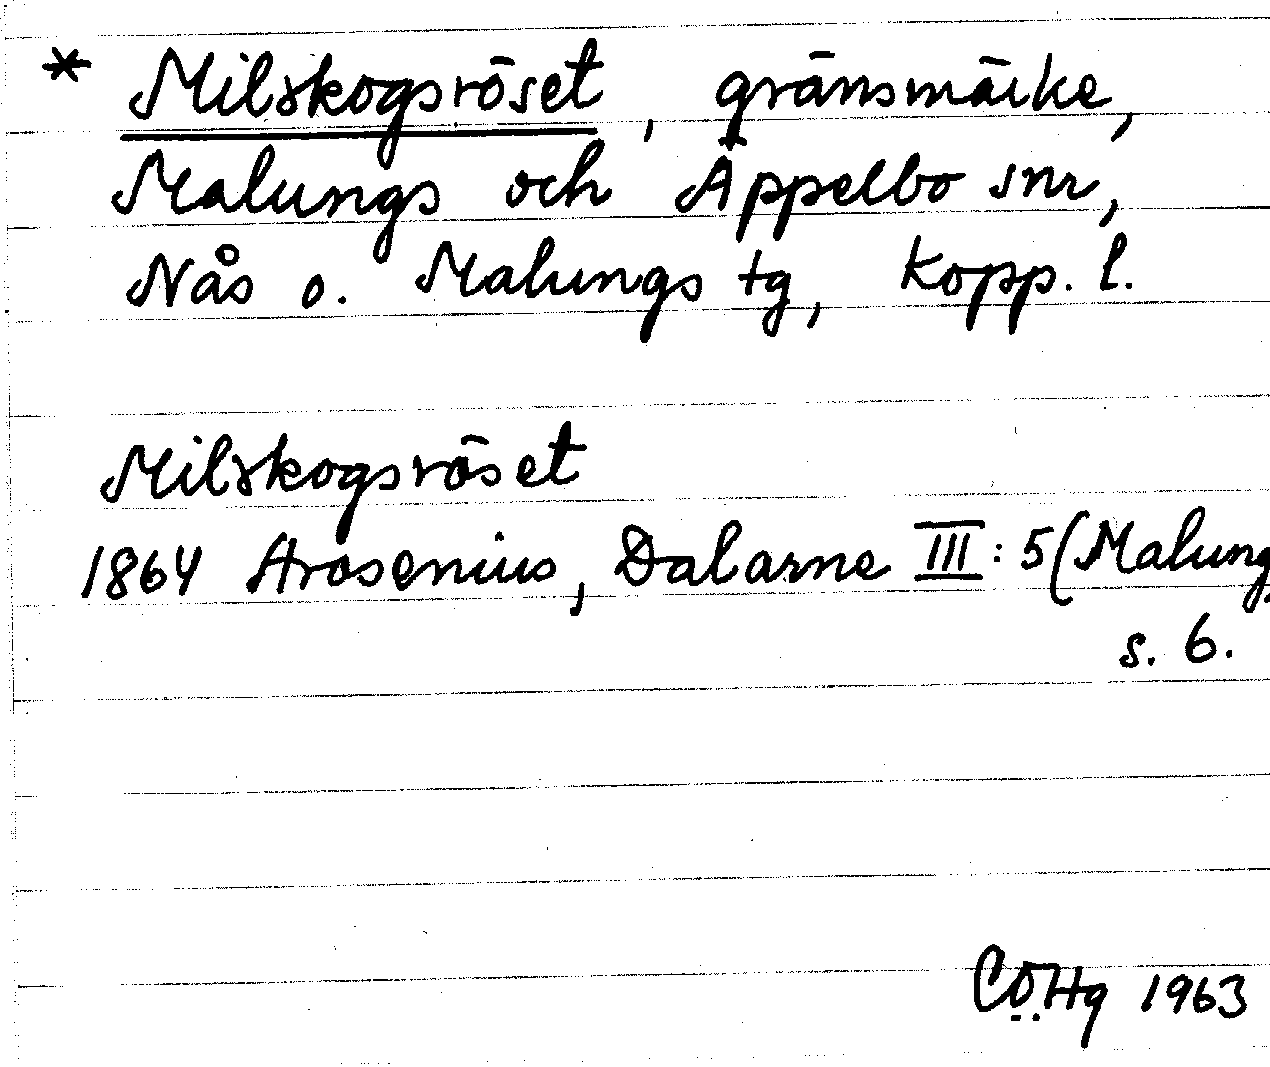 * Milskogsröset, gränsmärke,
Malungs och Äppelbo snr,
Nås o. Malungs tg, Kopp. l.
Milskogsröset
1864 Arosenius, Dalarne III: 5 (Malung)
s. 6.
CÖHg 1963